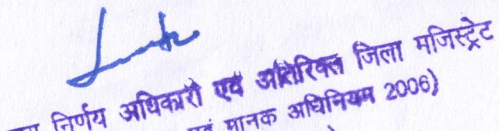 निर्णय अधिकारी एवं अतिरिक्त जिला मजिस्ट्रेट
मानक अधिनियम 2006)